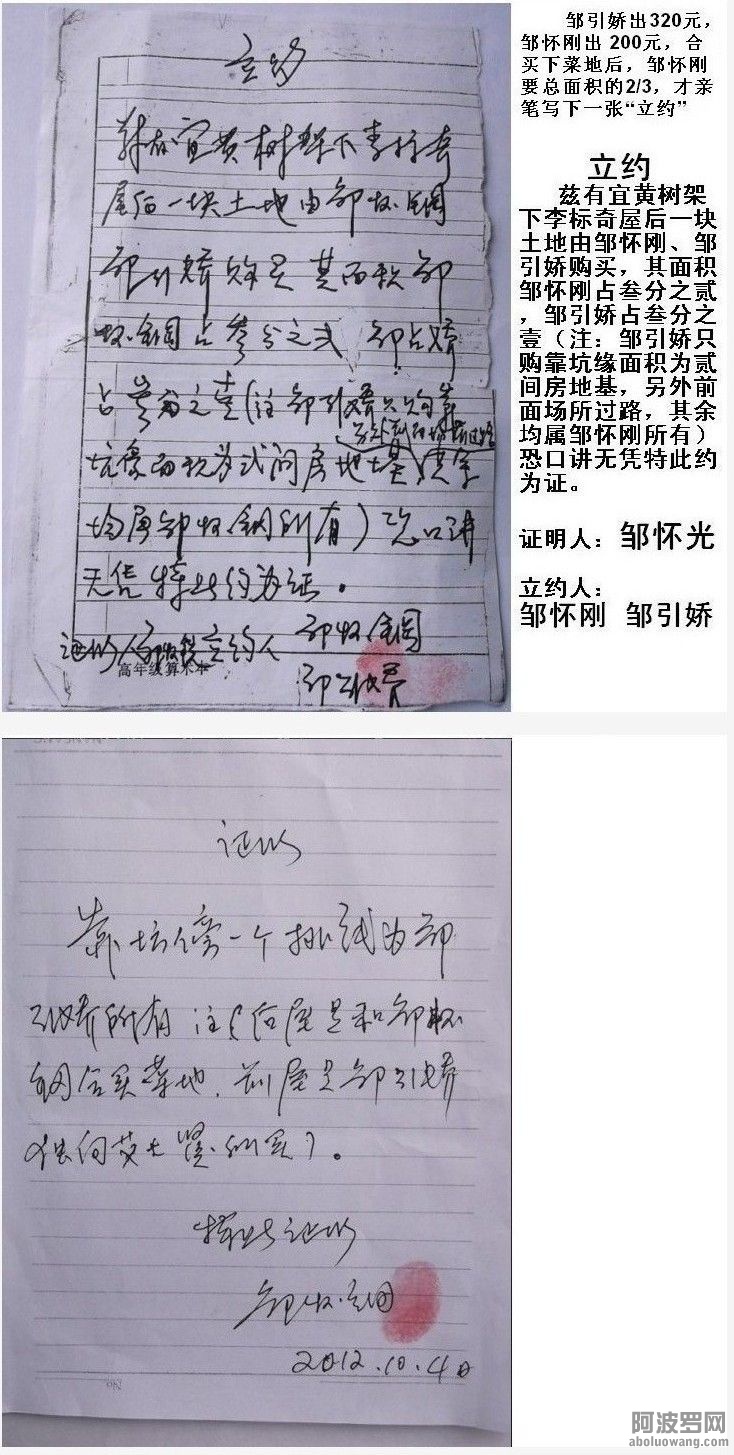 立约
兹有宜黄树架下李标奇
屋后一块土地由邹怀钢
邹引娇购买其面积邹
怀钢占叁分之贰 邹引娇
占叁分之壹(注邹引娇只购靠
另外前面场所过路
坑缘面积为贰间房地基 其余
均属邹怀钢所有)恐口讲
无凭特此约为证。
证明人 立约人 邹怀钢
邹引娇
高年级算术本
邹引娇出320元，
邹怀刚出 200元，合
买下菜地后，邹怀刚
要总面积的2/3，才亲
笔写下一张“立约”
立约
兹有宜黄树架
下李标奇屋后一块
土地由邹怀刚、邹
引娇购买，其面积
邹怀刚占叁分之贰
，邹引娇占叁分之
壹（注：邹引娇只
购靠坑缘面积为贰
间房地基，另外前
面场所过路，其余
均属邹怀刚所有）
恐口讲无凭特此约
为证。
证明人：邹怀光
立约人：
邹怀刚 邹引娇
证明
靠坑傍一个排线为邹
引娇所有 注(后屋是和邹怀
钢合买菜地，前屋是邹引娇
向 所买)。
特此证明
邹怀钢
2012.10.4日
阿波罗网
aboluowang.com